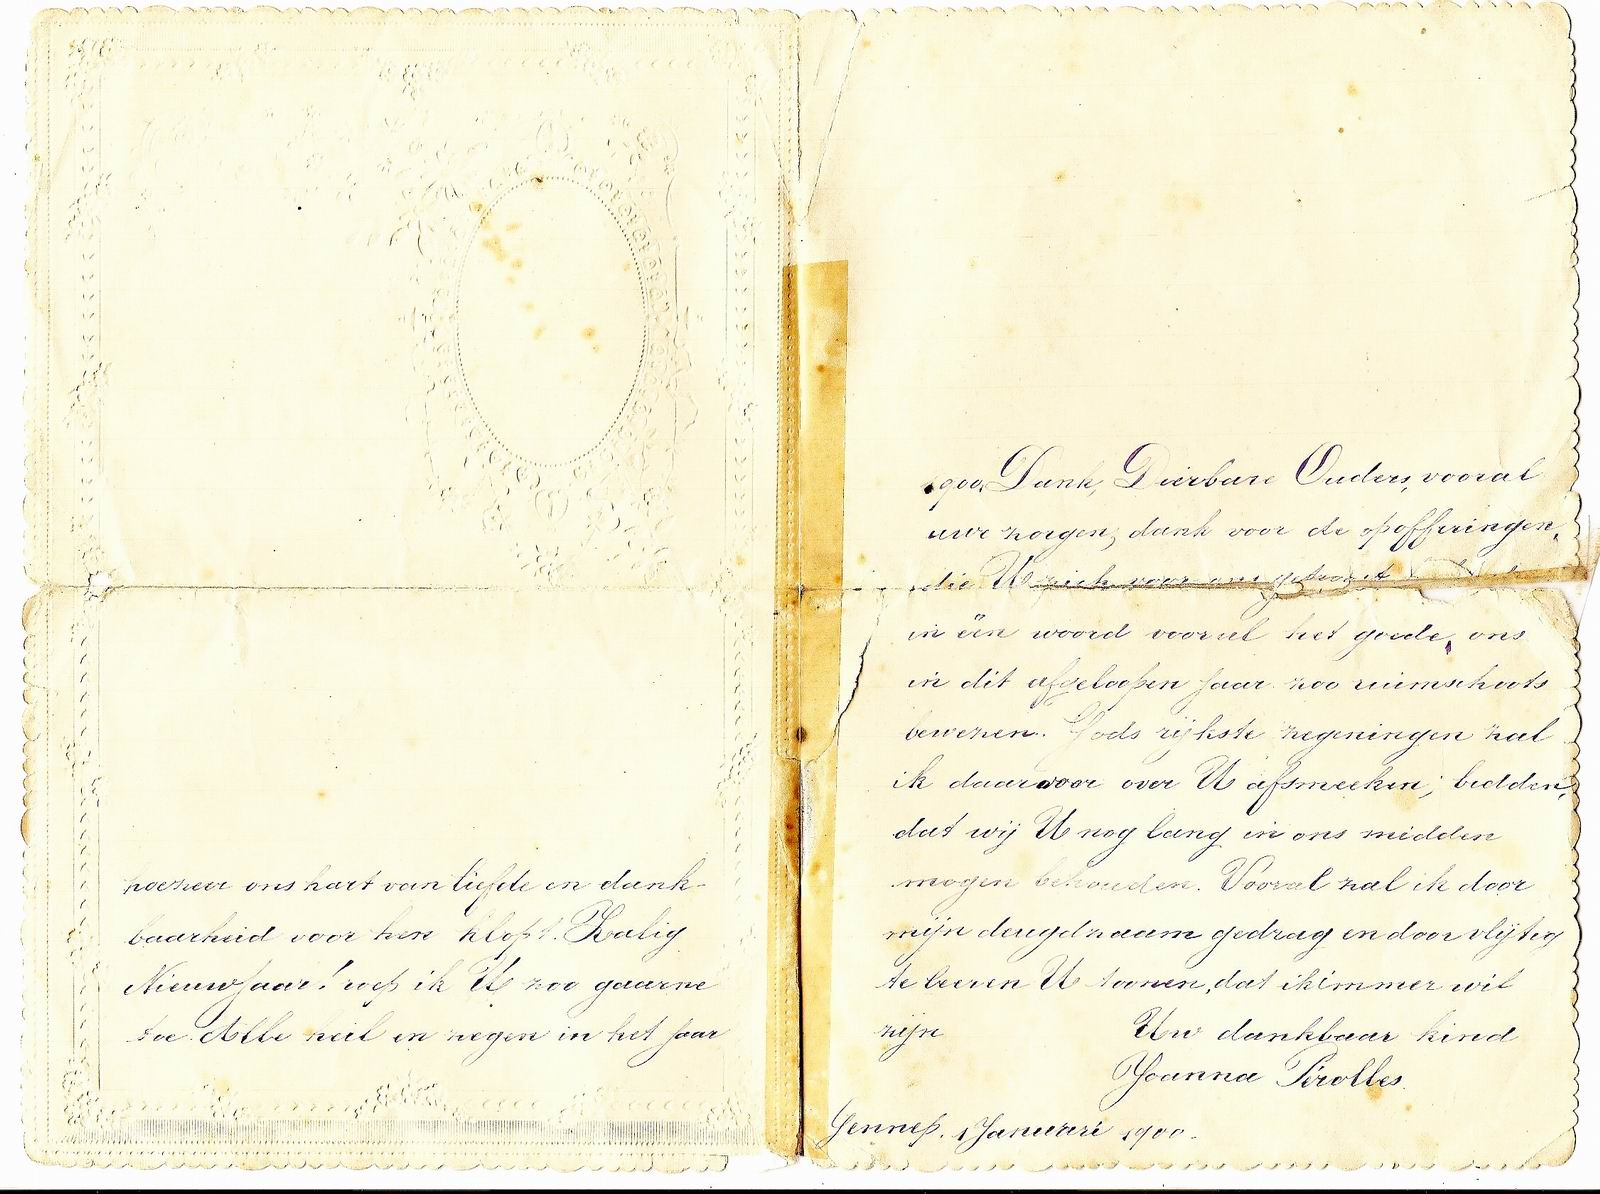 hoezeer ons hart van liefde en dank-
baarheid voor hen klopt. Zalig
Nieuwjaar! roep ik U zoo gaarne
toe. Alle heil en zegen in het jaar
1900. Dank, Dierbare Ouders, vooral
uwe zorgen, dank voor de opofferingen,
die U zich voor ons getroost
in één woord vooral het goede, ons
in dit afgeloopen jaar zoo ruimschoots
bewezen. Gods rijkste zegeningen zal
ik daarvoor over U afsmeeken, bidden,
dat wij U nog lang in ons midden
mogen behouden. Vooral zal ik door
mijn deugdzaam gedrag en door vlijtig
te leeren U toonen, dat ik immer wil
zijn Uw dankbaar kind
Joanna Pirolles.
Gennep. 1 Januari 1900.